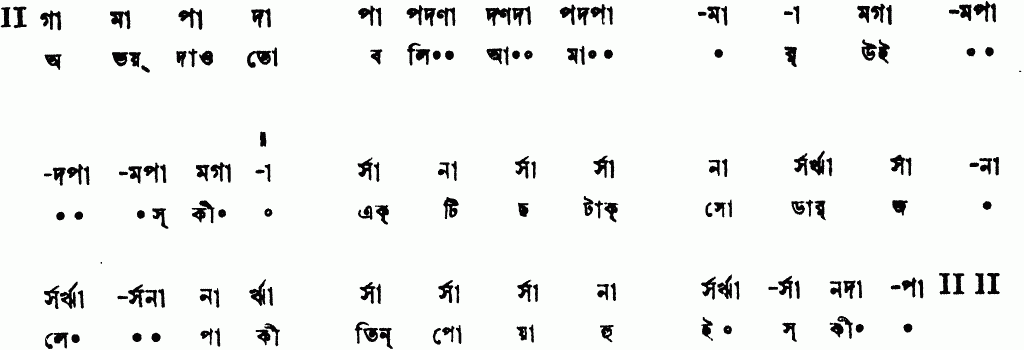 II গা মা পা দা পা পদণা দণদা পদপা -মা -া মগা -মপা
অ ভয়্ দাও তো ব লি•• আ•• মা•• • য়্ উই ••
-দপা -মপা মগা -া র্সা না র্সা র্সা না র্সর্ঋা র্সা -না
•• •স্ কী• ৹ এক্ টি ছ টাক্ সো ডার্ জ •
র্সর্ঋা -র্সনা না র্ঋা র্সা র্সা র্সা না র্সর্ঋা -র্সা নদা -পা II II
লে• •• পা কী তিন্ পো য়া হু ই৹ স্ কী• •